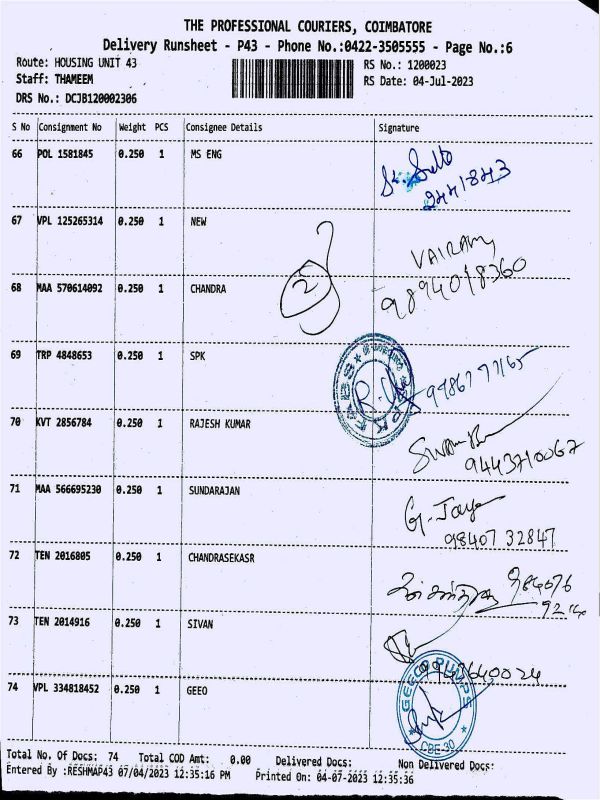 THE PROFESSIONAL COURIERS, COIMBATORE
Delivery Runsheet - P43 - Phone No.:0422-3505555 - Page No.:6
Route: HOUSING UNIT 43 RS No.: 1200023
Staff: THAMEEM RS Date: 04-Jul-2023
DRS No.: DCJB120002306
S No Consignment No Weight PCS Consignee Details Signature
66 POL 1581845 0.250 1 MS ENG
67 VPL 125265314 0.250 1 NEW VAIRAM
9894018360
68 MAA 570614092 0.250 1 CHANDRA 2
69 TRP 4848653 0.250 1 SPK
70 KVT 2856784 0.250 1 RAJESH KUMAR
9443710067
71 MAA 566695230 0.250 1 SUNDARAJAN G. Jaya
98407 32847
72 TEN 2016805 0.250 1 CHANDRASEKASR
73 TEN 2014916 0.250 1 SIVAN
74 VPL 334818452 0.250 1 GEEO
CBE-30
Total No. Of Docs: 74 Total COD Amt: 0.00 Delivered Docs: Non Delivered Docs:
Entered By :RESHMAP43 07/04/2023 12:35:16 PM Printed On: 04-07-2023 12:35:36